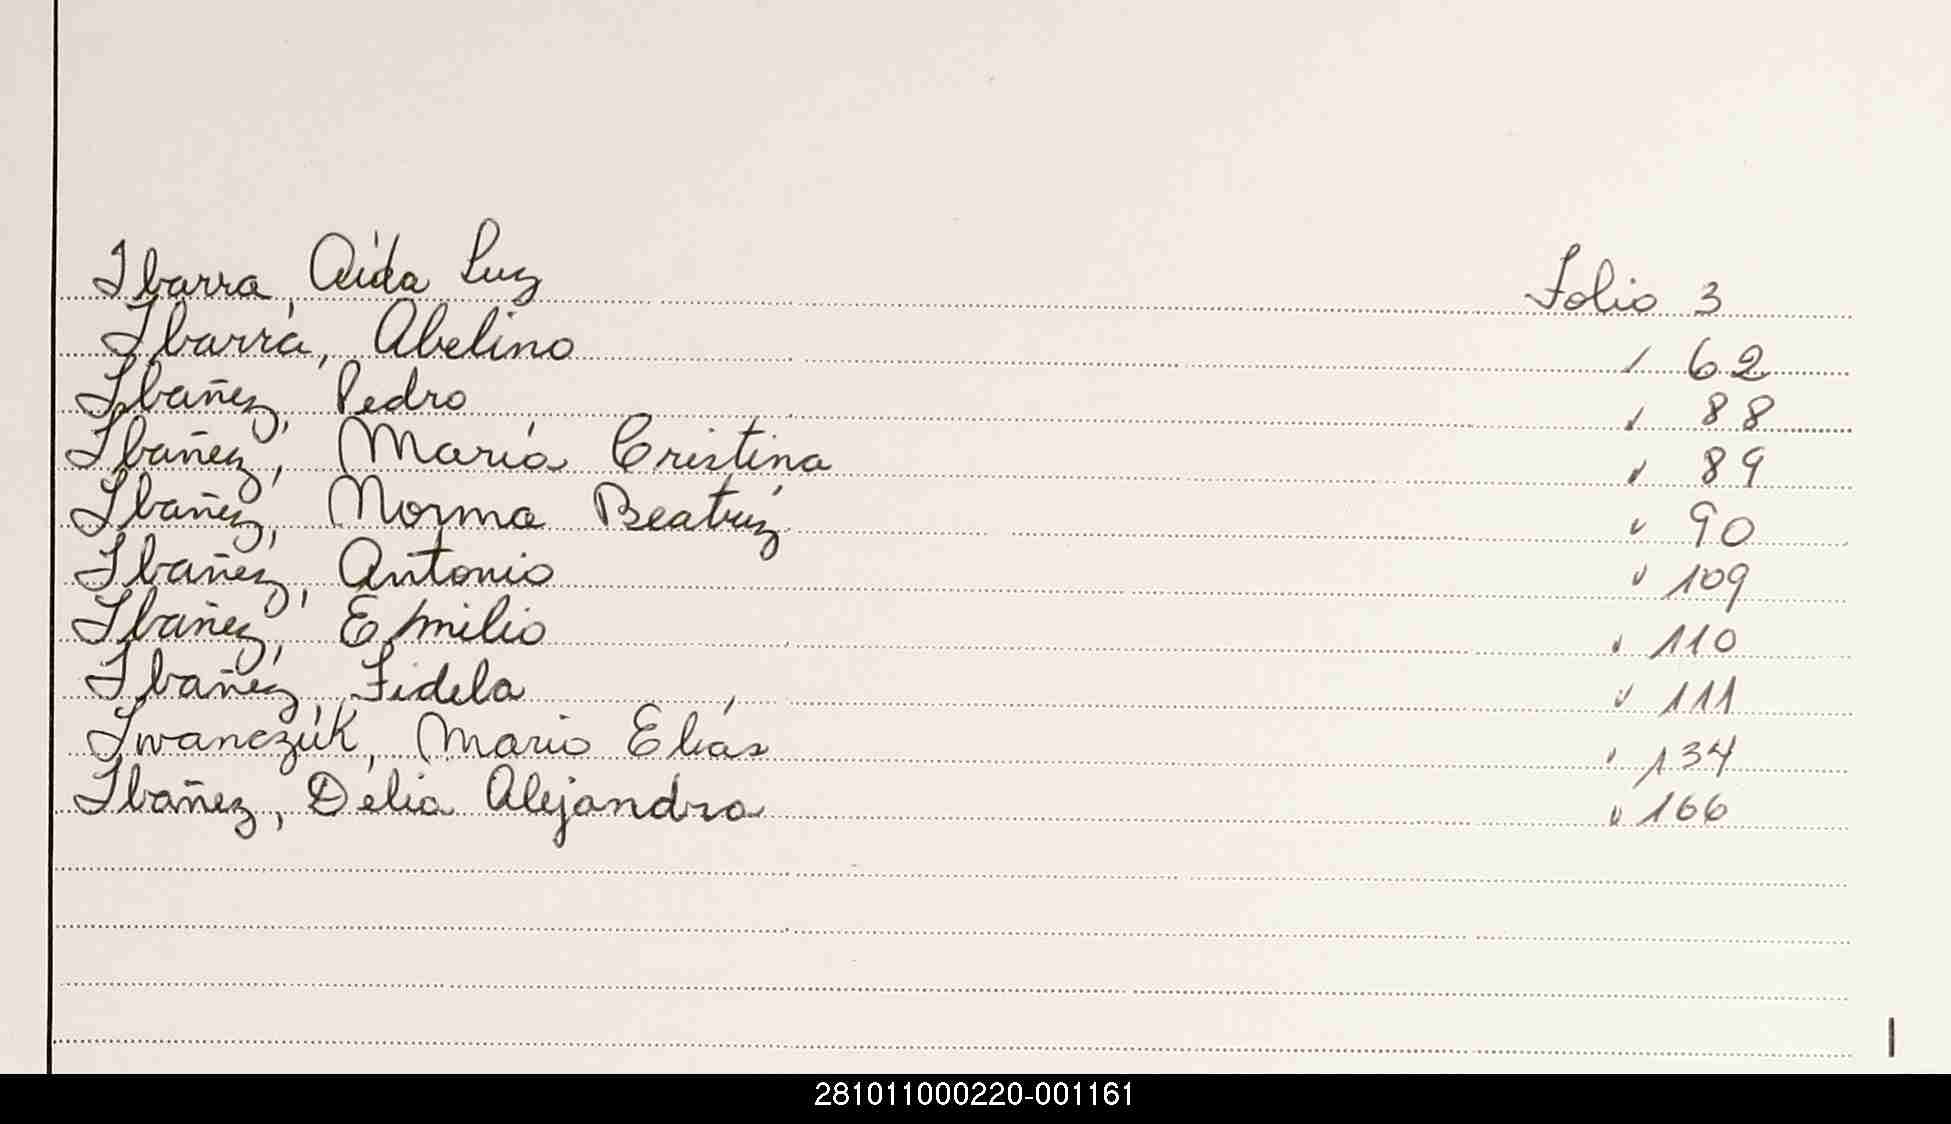 Ibarra, Aída Luz Folio 3
Ibarra, Abelino " 62
Ibañez, Pedro " 88
Ibañez, María Cristina " 89
Ibañez, Norma Beatríz " 90
Ibañez, Antonio " 109
Ibañez, Emilio " 110
Ibañez, Fidela " 111
Iwanczúk, Mario Elías " 134
Ibañez, Délia Alejandra " 166
I
281011000220-001161